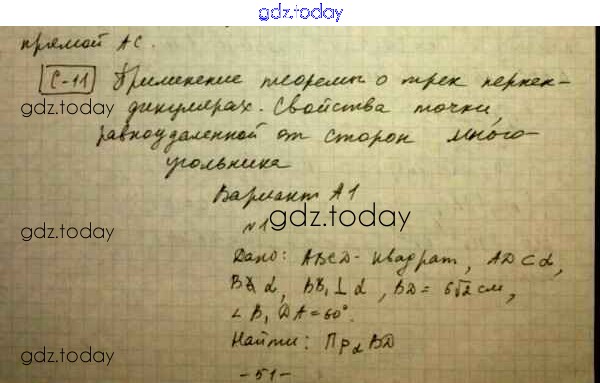 gdz.today
прямой AC.
С-11 Применение теоремы о трех перпен-
gdz.today
дикулярах. Свойства точки,
gdz.today
равноудаленной от сторон много-
угольника
Вариант А1
gdz.today
№1
gdz.today
Дано: ABCD - квадрат, AD ⊂ α,
gdz.today
B∉ α, BB₁ ⊥ α, BD = 6√2 см,
∠ B₁DA = 60°.
Найти: Пр α BD
gdz.today
- 51 -